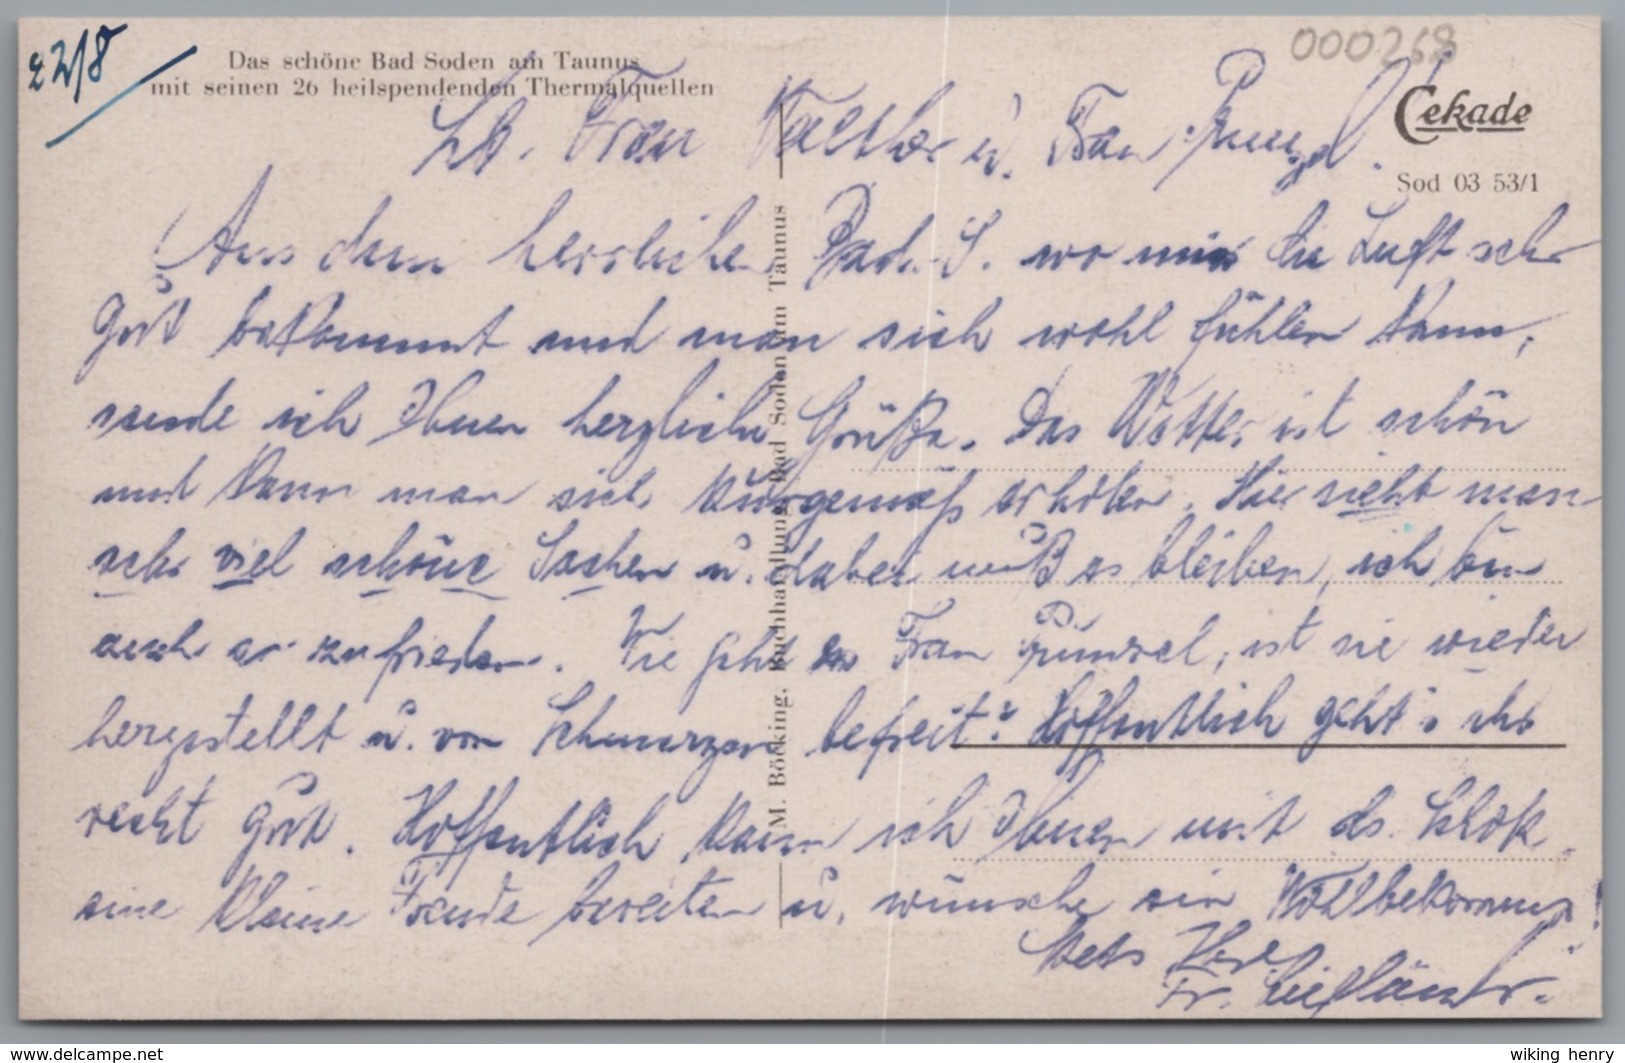 22/8
Das schöne Bad Soden am Taunus
mit seinen 26 heilspendenden Thermalquellen
000268
Cekade
Sod 03 53/1
Lb. Frau Walther u. Frau
Aus dem herrlichen Bad-S. wo mir die Luft sehr
gut bekommt und man sich wohl fühlen kann,
sende ich Ihnen herzliche Grüße. Das Wetter ist schön
und kann man sich kurgemäß erholen. Hier sieht man
sehr viel schöne Sachen u. dabei muß es bleiben, ich bin
auch so zufrieden. Wie geht es Frau Pünzel, ist sie wieder
hergestellt u. von Schmerzen befreit? Hoffentlich geht's ihr
recht gut. Hoffentlich kann ich Ihnen mit ds. Schok.
eine kleine Freude bereiten u. wünsche ein Wohlbekomms!
Stets Ihre
Fr.
M. Böcking, Buchhandlung, Bad Soden am Taunus
www.delcampe.net
wiking_henry